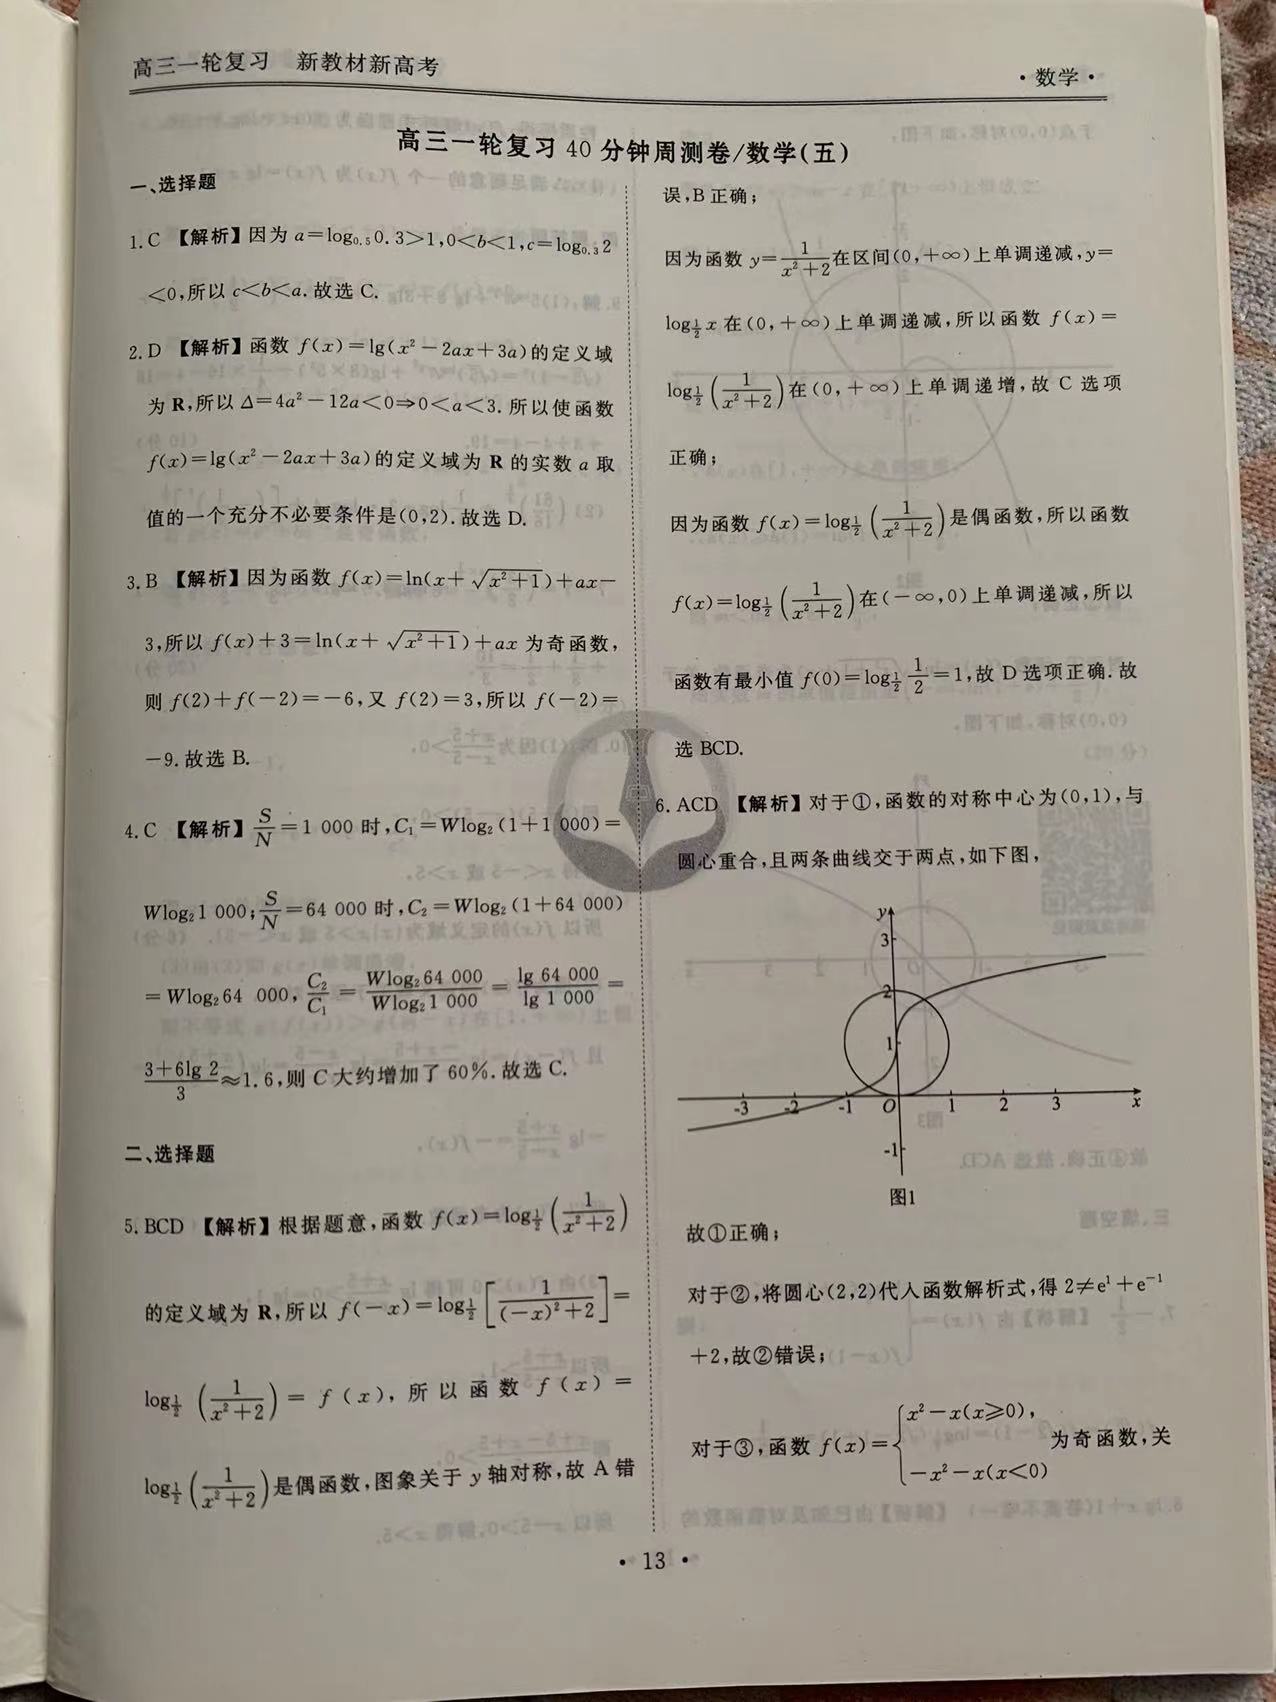 高三一轮复习　新教材新高考
·数学·
高三一轮复习40分钟周测卷/数学(五)
一、选择题
1. C 【解析】因为 a=log₀.₅0.3>1,0<b<1,c=log₀.₃2
<0,所以 c<b<a.故选 C.
2. D 【解析】函数 f(x)=lg(x²-2ax+3a)的定义域
为 R,所以 Δ=4a²-12a<0⇒0<a<3.所以使函数
f(x)=lg(x²-2ax+3a)的定义域为 R 的实数 a 取
值的一个充分不必要条件是(0,2).故选 D.
3. B 【解析】因为函数 f(x)=ln(x+√(x²+1))+ax-
3,所以 f(x)+3=ln(x+√(x²+1))+ax 为奇函数,
则 f(2)+f(-2)=-6,又 f(2)=3,所以 f(-2)=
-9.故选 B.
4. C 【解析】S/N=1 000 时,C₁=Wlog₂(1+1 000)=
Wlog₂1 000;S/N=64 000 时,C₂=Wlog₂(1+64 000)
=Wlog₂64 000,C₂/C₁=Wlog₂64 000/Wlog₂1 000=lg 64 000/lg 1 000=
(3+6lg 2)/3≈1.6,则 C 大约增加了 60%.故选 C.
二、选择题
5. BCD 【解析】根据题意,函数 f(x)=log_{1/2}(1/(x²+2))
的定义域为 R,所以 f(-x)=log_{1/2}[1/((-x)²+2)]=
log_{1/2}(1/(x²+2))=f(x),所以函数 f(x)=
log_{1/2}(1/(x²+2))是偶函数,图象关于 y 轴对称,故 A 错
误,B 正确;
因为函数 y=1/(x²+2)在区间(0,+∞)上单调递减,y=
log_{1/2}x 在(0,+∞)上单调递减,所以函数 f(x)=
log_{1/2}(1/(x²+2))在(0,+∞)上单调递增,故 C 选项
正确;
因为函数 f(x)=log_{1/2}(1/(x²+2))是偶函数,所以函数
f(x)=log_{1/2}(1/(x²+2))在(-∞,0)上单调递减,所以
函数有最小值 f(0)=log_{1/2}1/2=1,故 D 选项正确.故
选 BCD.
6. ACD 【解析】对于①,函数的对称中心为(0,1),与
圆心重合,且两条曲线交于两点,如下图,
y
3
2
1
-3 -2 -1 O 1 2 3 x
-1
图1
故①正确;
对于②,将圆心(2,2)代入函数解析式,得 2≠e¹+e⁻¹
+2,故②错误;
对于③,函数 f(x)={x²-x(x≥0), -x²-x(x<0) 为奇函数,关
·13·